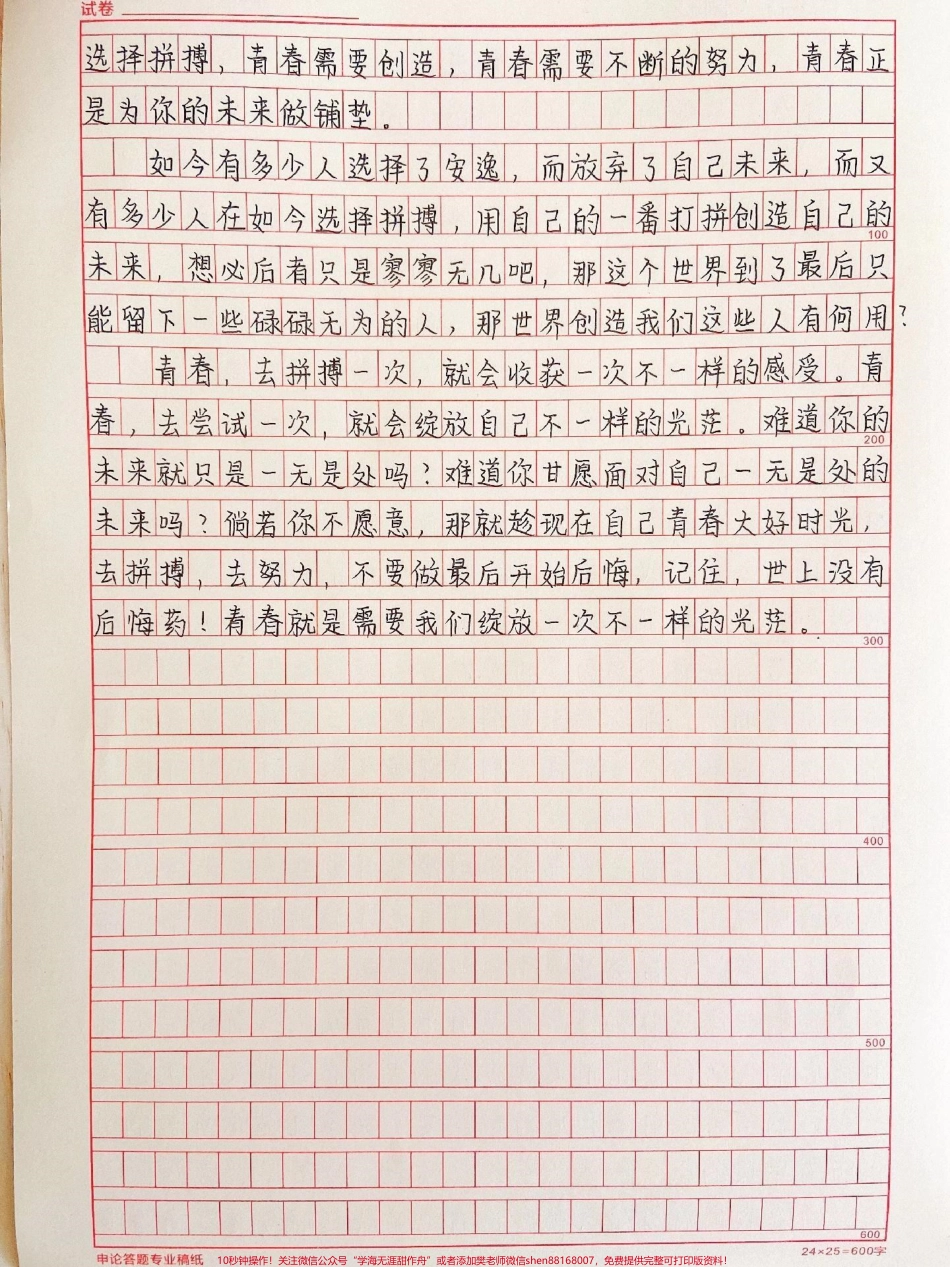 试卷
选择拼搏，青春需要创造，青春需要不断的努力，青春正
是为你的未来做铺垫。
如今有多少人选择了安逸，而放弃了自己未来，而又
有多少人在如今选择拼搏，用自己的一番打拼创造自己的
100
未来，想必后者只是寥寥无几吧，那这个世界到了最后只
能留下一些碌碌无为的人，那世界创造我们这些人有何用？
青春，去拼搏一次，就会收获一次不一样的感受。青
春，去尝试一次，就会绽放自己不一样的光茫。难道你的
200
未来就只是一无是处吗？难道你甘愿面对自己一无是处的
未来吗？倘若你不愿意，那就趁现在自己青春大好时光，
去拼搏，去努力，不要做最后开始后悔，记住，世上没有
后悔药！青春就是需要我们绽放一次不一样的光茫。
300
400
500
600
申论答题专业稿纸 10秒钟操作！关注微信公众号“学海无涯甜作舟”或者添加樊老师微信shen88168007，免费提供完整可打印版资料！ 24×25=600字